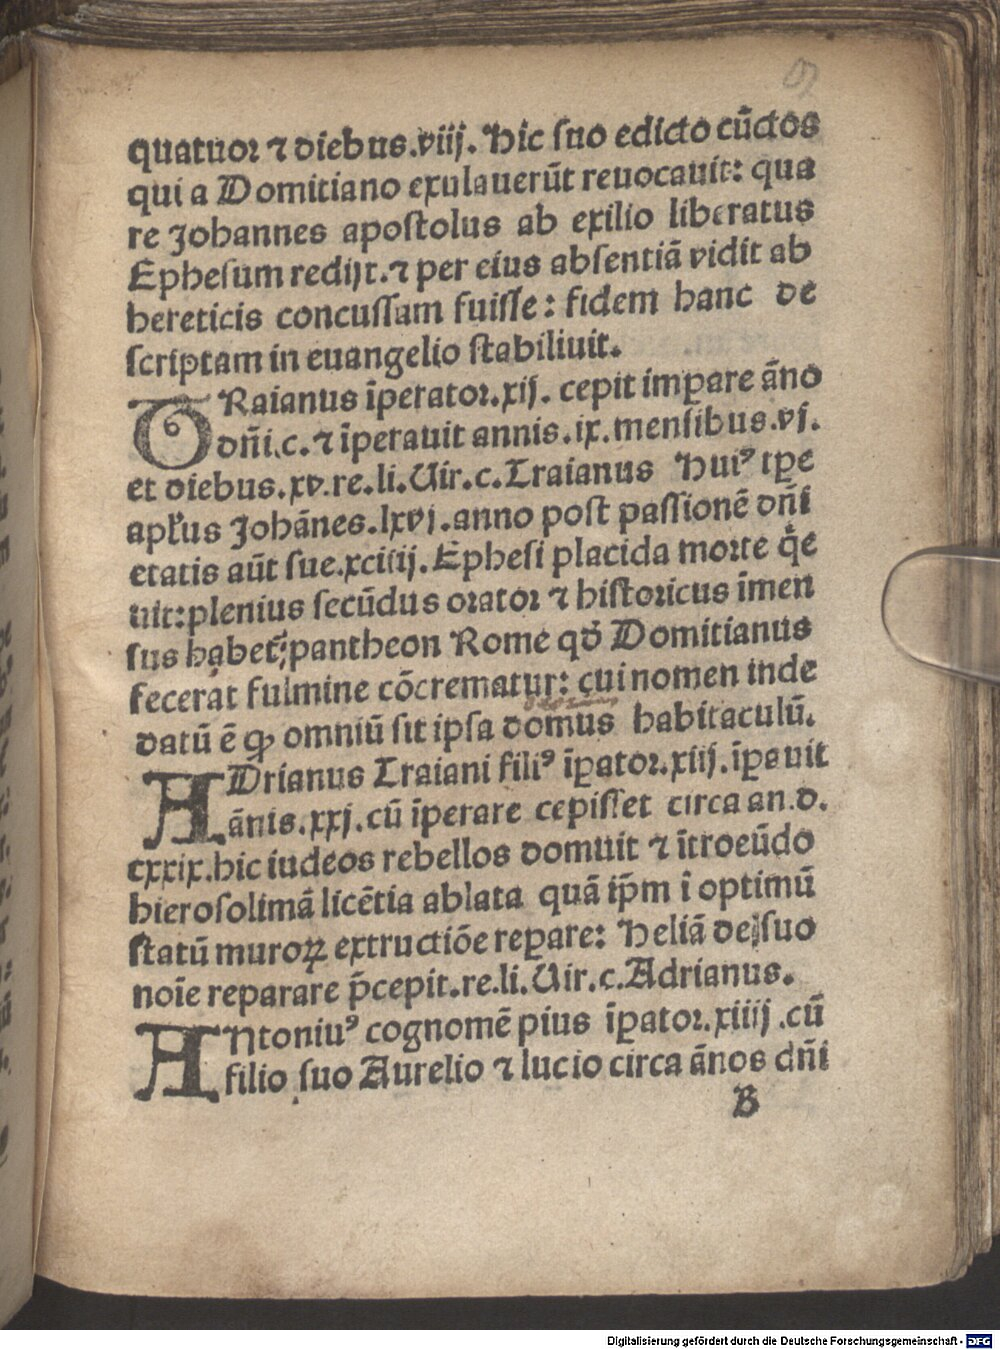 9
quatuor ⁊ diebus.viij. Hic suo edicto cūctos
qui a Domitiano exulauerūt reuocauit: qua
re Johannes apostolus ab exilio liberatus
Ephesum redijt.⁊ per eius absentiā vidit ab
hereticis concussam fuisse: fidem hanc de
scriptam in euangelio stabiliuit.
TRaianus īperator.xij. cepit impare āno
dn̄i.c. ⁊ īperauit annis.ix.mensibus.vj.
et diebus.xv.re.li.Uir.c.Traianus Huiꝰ tꝑe
apl̓us Johānes.lxvj.anno post passionē dn̄i
etatis aūt sue.xciiij. Ephesi placida morte q̇e
uit:plenius secūdus orator ⁊ historicus īmen
sus habet᷑;pantheon Rome qd̓ Domitianus
fecerat fulmine cōcrematur: cui nomen inde
datū ē ꝙ omniū sit ipsa domus habitaculū.
ADrianus Traiani filiꝰ īꝑator.xiij.īꝑauit
ānis.xxj.cū īperare cepisset circa an.d.
cxxix.hic iudeos rebellos domuit ⁊ ītroeūdo
hierosolimā licētia ablata quā ip̄m ī optimū
statū muroꝝ extructiōe reꝑare: Heliā de suo
noīe reparare p̄cepit.re.li.Uir.c.Adrianus.
ANtoniuꝰ cognomē pius īꝑator.xiiij.cū
filio suo Aurelio ⁊ lucio circa ānos dn̄i
B
Digitalisierung gefördert durch die Deutsche Forschungsgemeinschaft - DFG